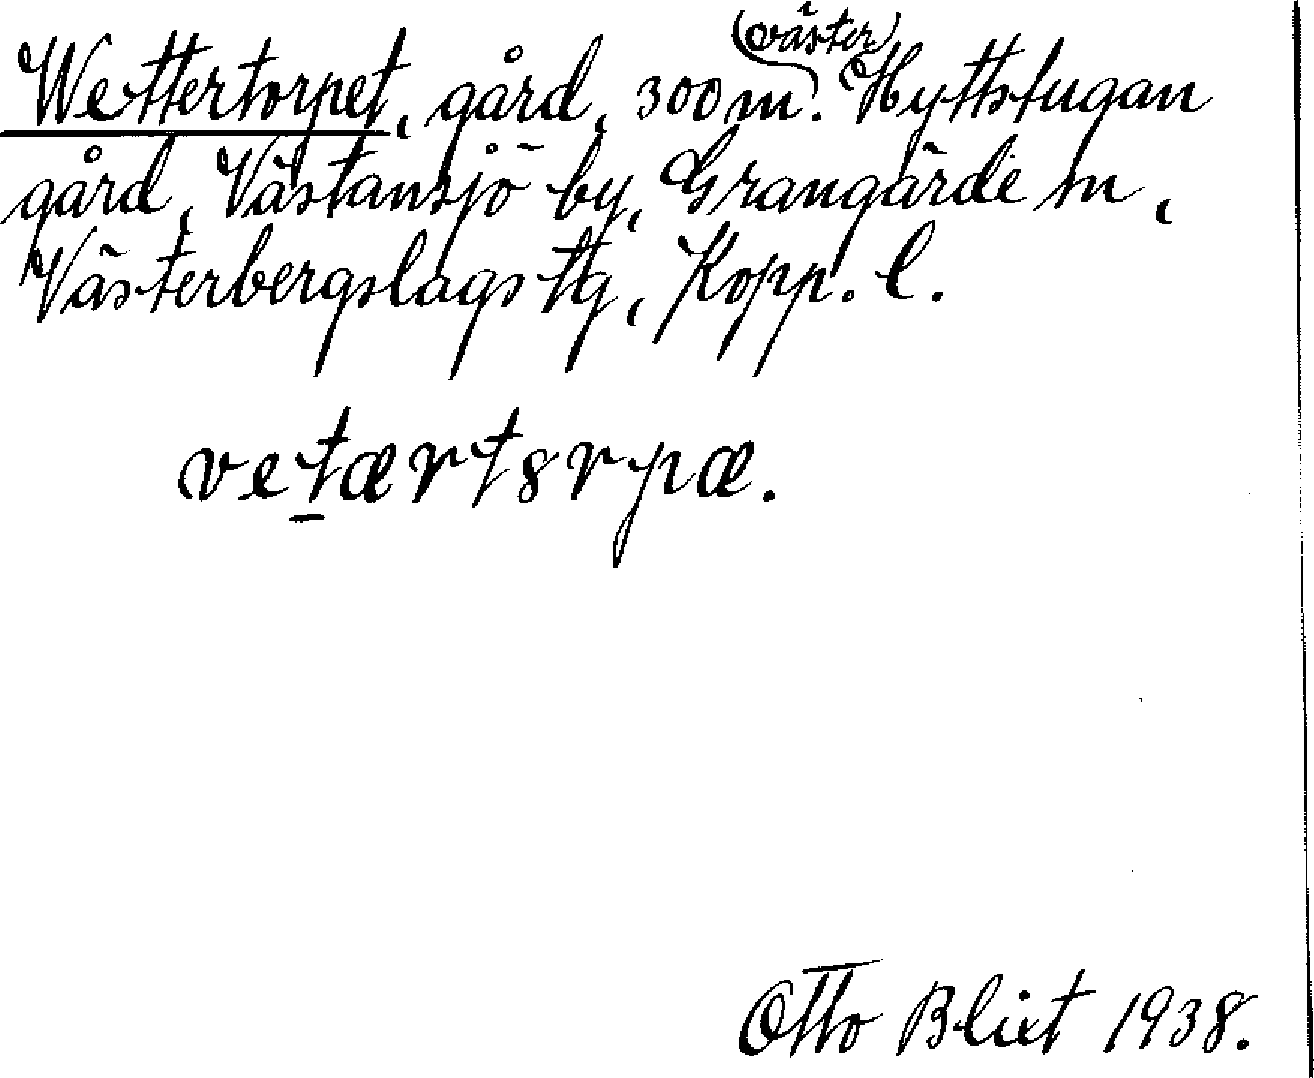 (väster)
Wettertorpet, gård, 300 m. Hyttstugan
gård, Västansjö by, Grangärde sn,
Västerbergslags tg, Kopp. l.
vetærtsrpæ.
Otto Blixt 1938.